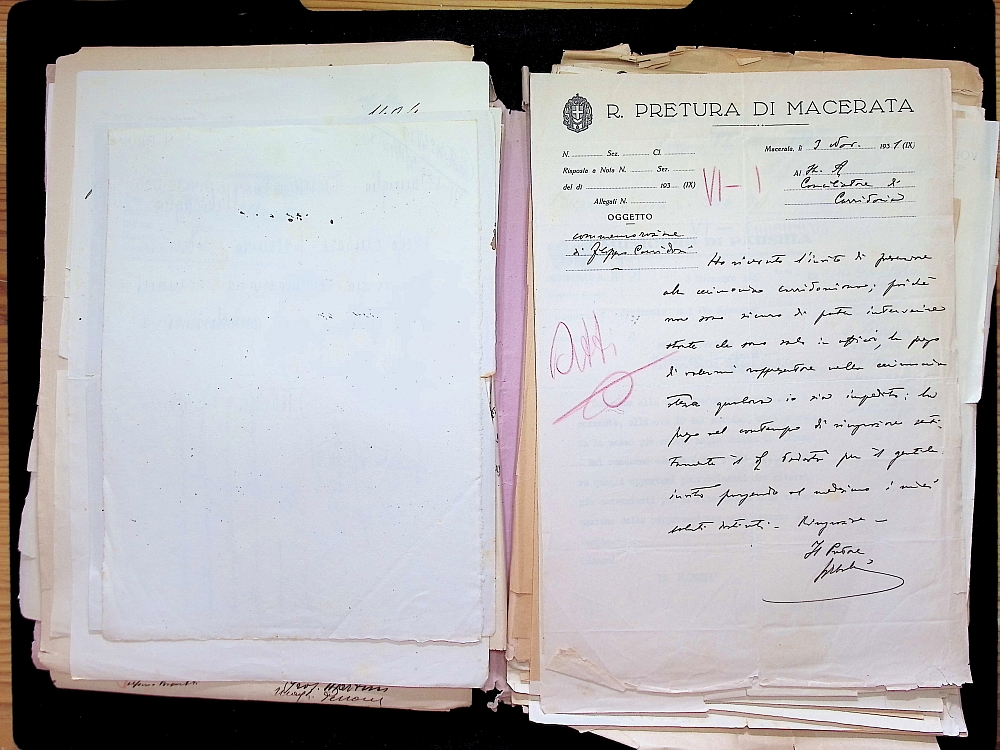 R. PRETURA DI MACERATA
N. Sez. Cl.
Macerata, li 3 Nov. 1931 (IX)
Risposta a Nota N. Ser.
del di 193 (IX)
Allegati N.
VI - 1
Al
Conciliatore di
Corridonia
OGGETTO
commemorazione
di Filippo Corridoni
Ho ricevuto l'invito di presenziare
alla cerimonia corridoniana; poichè
non sono sicuro di poter intervenire
stante che sono solo in ufficio, la prego
di volermi rappresentare nella cerimonia
stessa qualora io sia impedito; la
prego nel contempo di ringraziare sen-
titamente il Podestà per il gentile
invito porgendo al medesimo i miei
saluti distinti. - Ringrazio -
Il Pretore
Atti